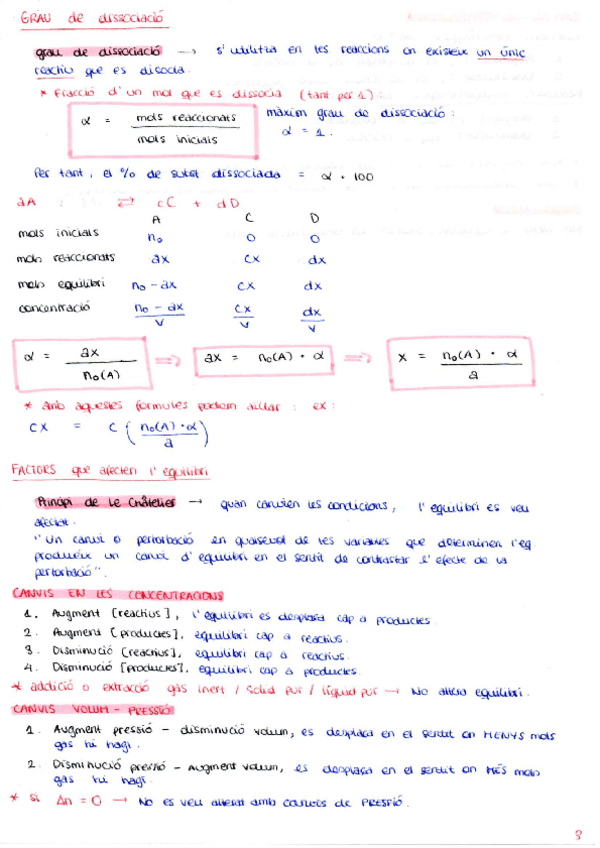 GRAU de dissociació
grau de dissociació → s'utilitza en les reaccions on existeix un únic
reactiu que es disocia.
* Fracció d'un mol que es dissocia (tant per 1) =
α = mols reaccionats / mols inicials
màxim grau de dissociació :
α = 1.
Per tant, el % de subst dissociada = α · 100
aA ⇄ cC + dD
A C D
mols inicials n₀ 0 0
mols reaccionats ax cx dx
mols equilibri n₀ - ax cx dx
concentració n₀ - ax / V cx / V dx / V
α = ax / n₀(A) ⇒ ax = n₀(A) · α ⇒ x = n₀(A) · α / a
* amb aquestes formules podem aïllar : ex :
cx = c ( n₀(A) · α / a )
FACTORS que afecten l'equilibri
Principi de Le Châtelier → quan canvien les condicions, l'equilibri es veu
afectat.
"Un canvi o pertorbació en qualsevol de les variables que determinen l'eq.
produeix un canvi d'equilibri en el sentit de contrastar l'efecte de la
pertorbació".
CANVIS EN LES CONCENTRACIONS
1. Augment [reactius], l'equilibri es desplaça cap a productes.
2. Augment [productes], equilibri cap a reactius.
3. Disminució [reactius], equilibri cap a reactius.
4. Disminució [productes], equilibri cap a productes.
* addició o extracció gas inert / sòlid pur / líquid pur → No altera equilibri.
CANVIS VOLUM - PRESSIÓ
1. Augment pressió - disminució volum, es desplaça en el sentit on MENYS mols
gas hi hagi.
2. Disminució pressió - Augment volum, es desplaça en el sentit on MÉS mols
gas hi hagi.
* si Δn = 0 → No es veu alterat amb canvis de PRESSIÓ.
3